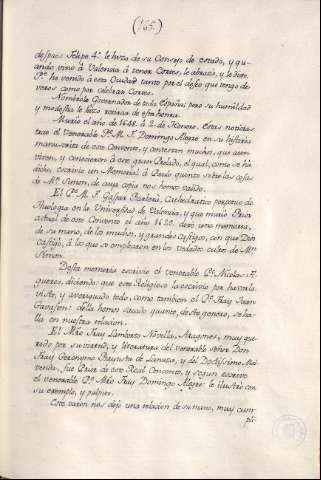 (165.)
despues Felipe 4.º le hizo de su Consejo de estado, y qu-
ando vino à Valencia à tener Cortes, le abrazò, y le dixo:
P.e he venido à esta Ciudad tanto por el deseo que tengo de
veros como por celebrar Cortes.
Nombròle Governador de toda España; pero su humildad
y modestia le hizo retirar de esta honra.
Muriò el año de 1648. à 2. de Henero. Estas noticias
trae el Venerable P.e M. F. Domingo Alegre en su historia
manuscrita de este Convento, y contestan muchos, que aun
viven, y conocieron à este gran Prelado, el qual, como se hà
dicho, escriviò un Memorial à Paulo quinto sobre las cosas
de M.n Simon, de cuya copia nos hemos valido.
El P.e M. F. Gaspar Catedratico perpetuo de
Theologia en la Universidad de Valencia, y que muriò Prior
actual de este Convento el año 1620. dexò una memoria,
de su mano, de los muchos, y grandes castigos, con que Dios
castigò, à los que se emplearon en los vedados cultos de M.n
Simon.
Desta memoria escrivio el venerable P.e Nicolas Fi-
gueres, diciendo: que este Religioso la escrivio por haverla
visto, y averiguado todo, como tambien el P.e Fray Juan
Gavaston: della hemos sacado quanto, de este genero, se ha-
lla en nuestra relacion.
El M.ro Fray Lamberto Novella, Aragones, muy que-
rido por su virtud, y literatura del venerable señor Don
Fray Geronymo Bautista de Lanuza, y del Doctissimo
fue Prior de este Real Convento, y segun escrive
el venerable P.e M.ro Fray Domingo Alegre: le ilustrò con
su exemplo, y pulpito.
Este varon nos dejo una relacion de su mano, muy cum-
pli-